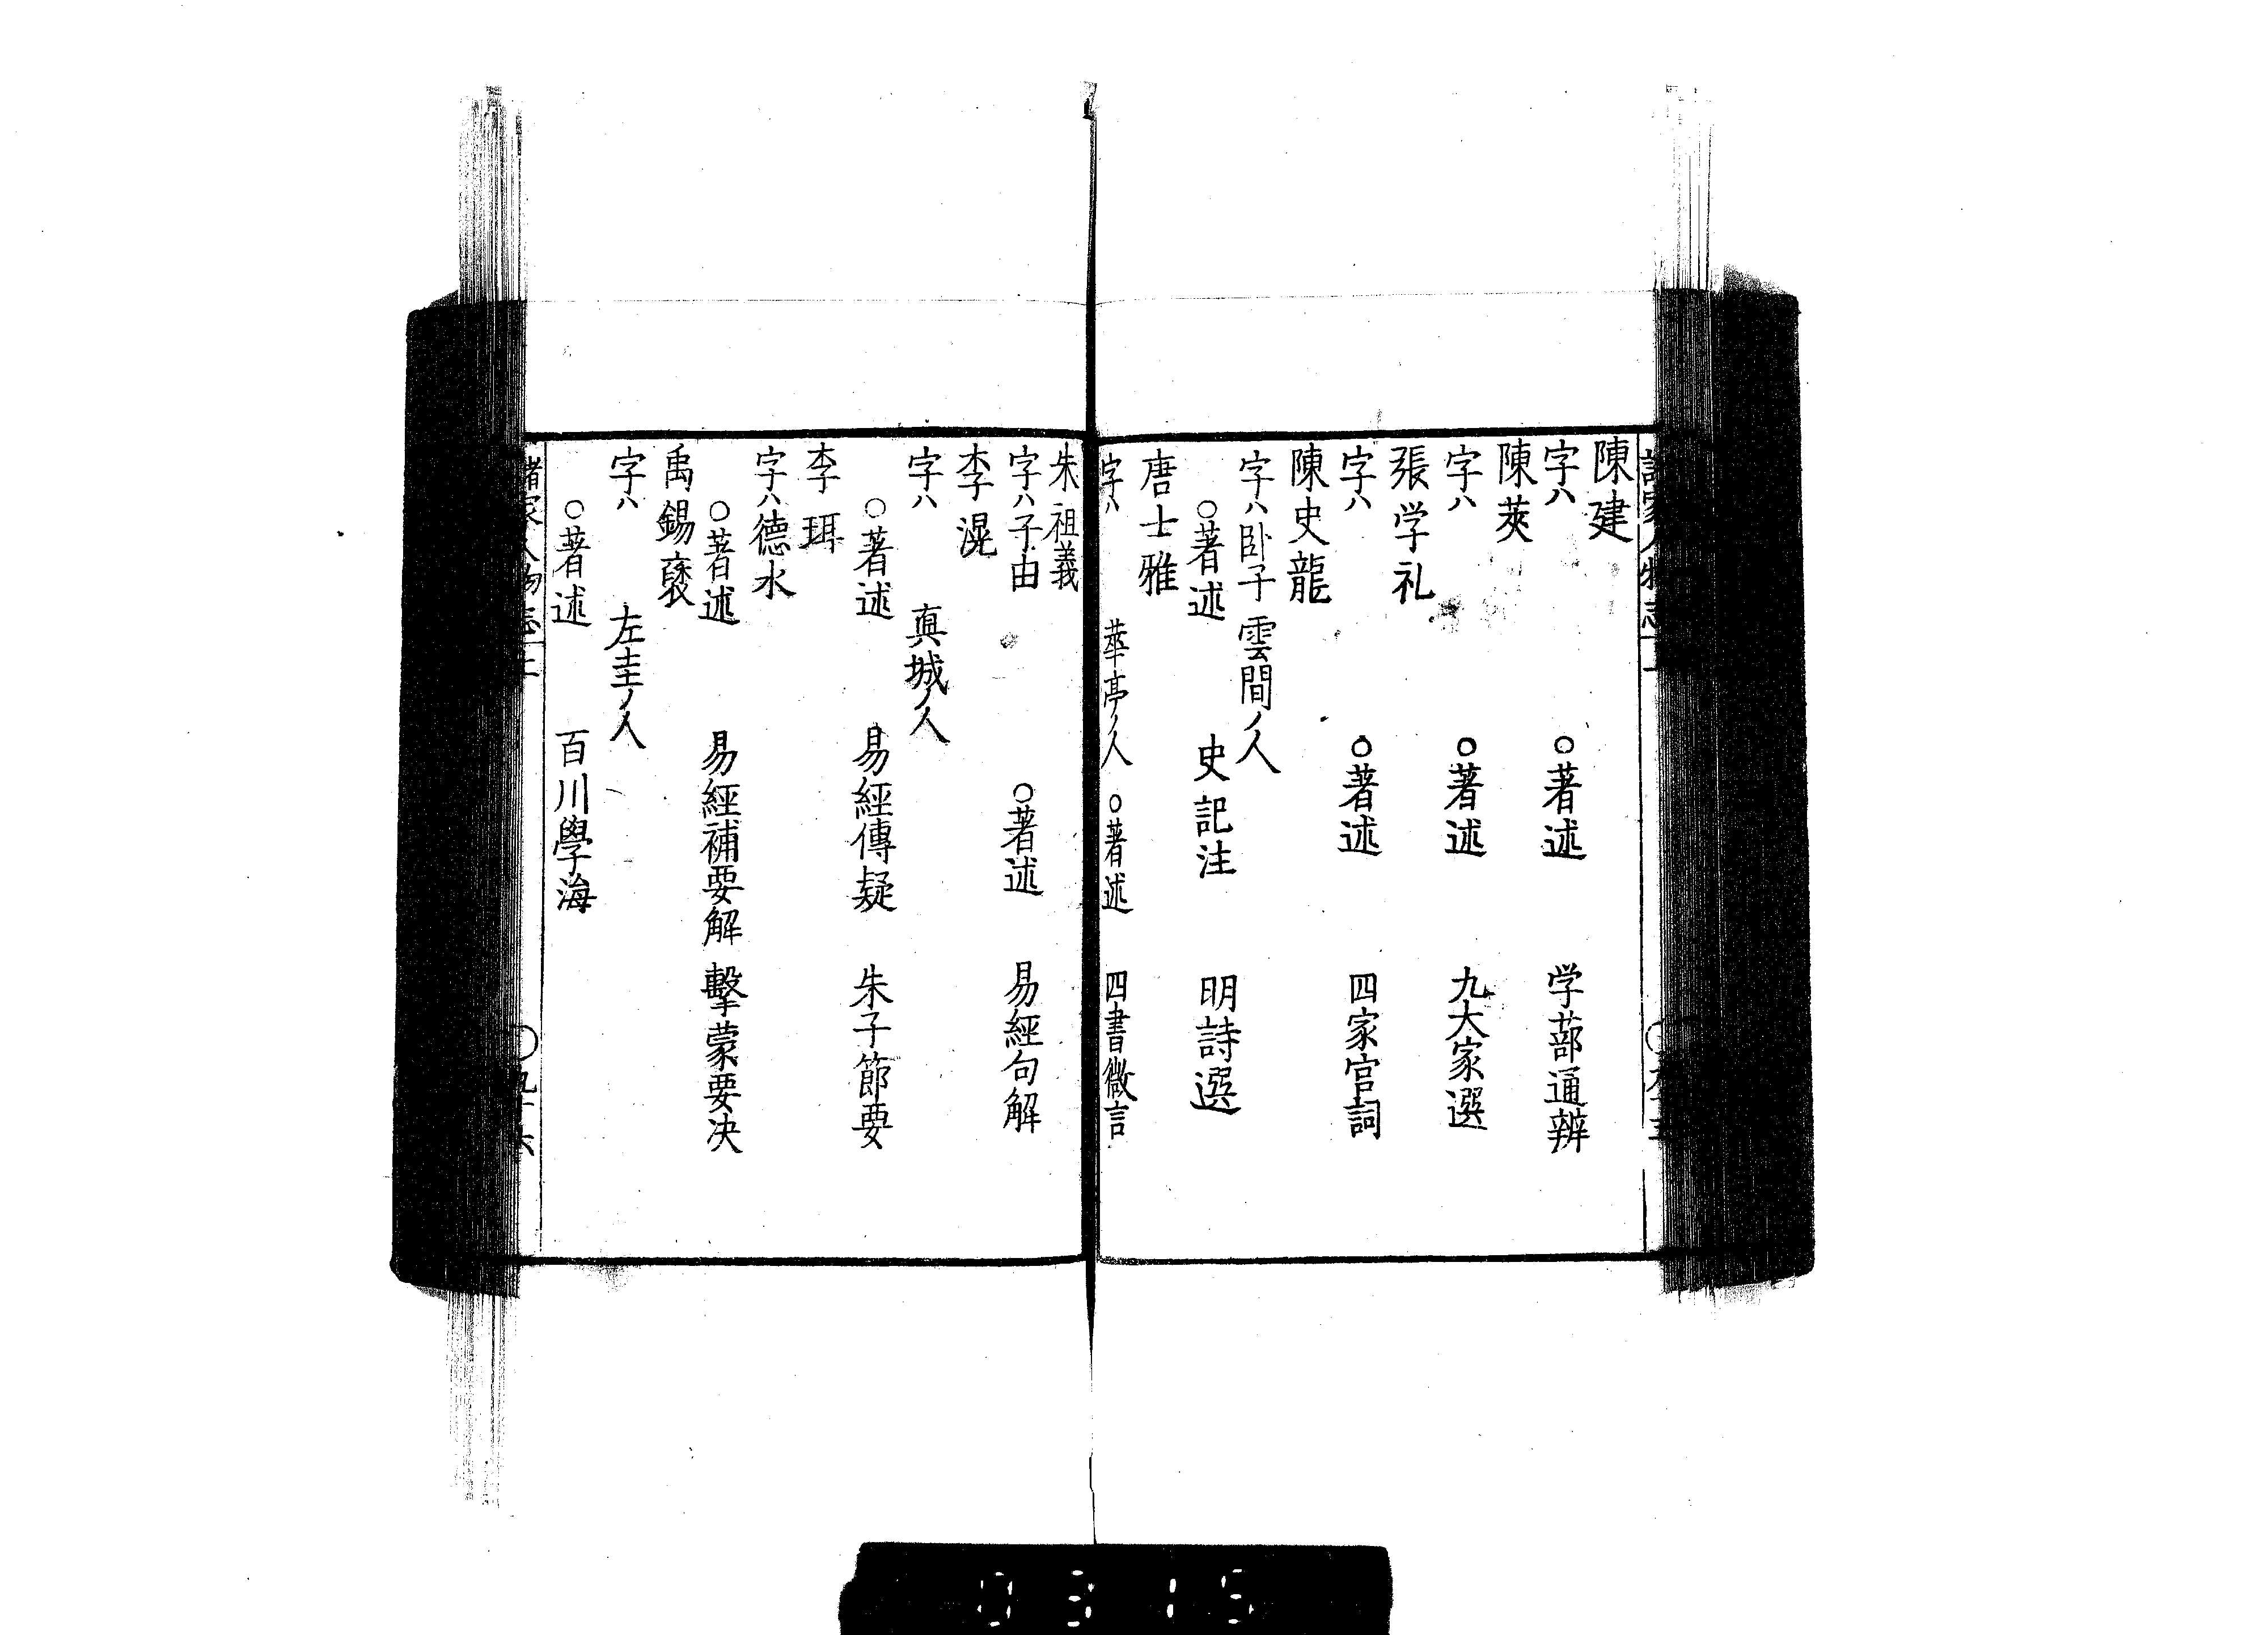 陳建
字ハ　○著述　学蔀通辨
陳莢
字ハ　○著述　九大家選
張学礼
字ハ　○著述　四家宮詞
陳史龍
字ハ卧子　雲間ノ人
○著述　史記注　明詩選
唐士雅
字ハ　華亭ノ人　○著述　四書微言
朱祖義
字ハ子由　○著述　易經句解
李滉
字ハ　真城ノ人
○著述　易經傳疑　朱子節要
李珥
字ハ德水
○著述　易經補要解　擊蒙要决
禹錫褎
字ハ　左圭ノ人
○著述　百川學海
諸家人物志上　○九十六
0315